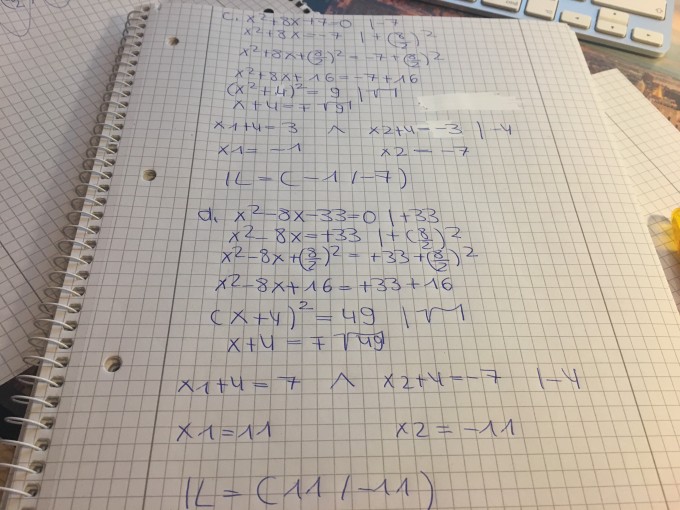 c. x²+8x+7=0 |-7
x²+8x=-7 |+(8/2)²
x²+8x+(8/2)²=-7+(8/2)²
x²+8x+16=-7+16
(x²+4)²=9 |√
x+4=∓√9
x1+4=3 ∧ x2+4=-3 |-4
x1=-1 x2=-7
IL=(-1/-7)
d. x²-8x-33=0 |+33
x²-8x=+33 |+(8/2)²
x²-8x+(8/2)²=+33+(8/2)²
x²-8x+16=+33+16
(x+4)²=49 |√
x+4=∓√49
x1+4=7 ∧ x2+4=-7 |-4
x1=11 x2=-11
IL=(11/-11)